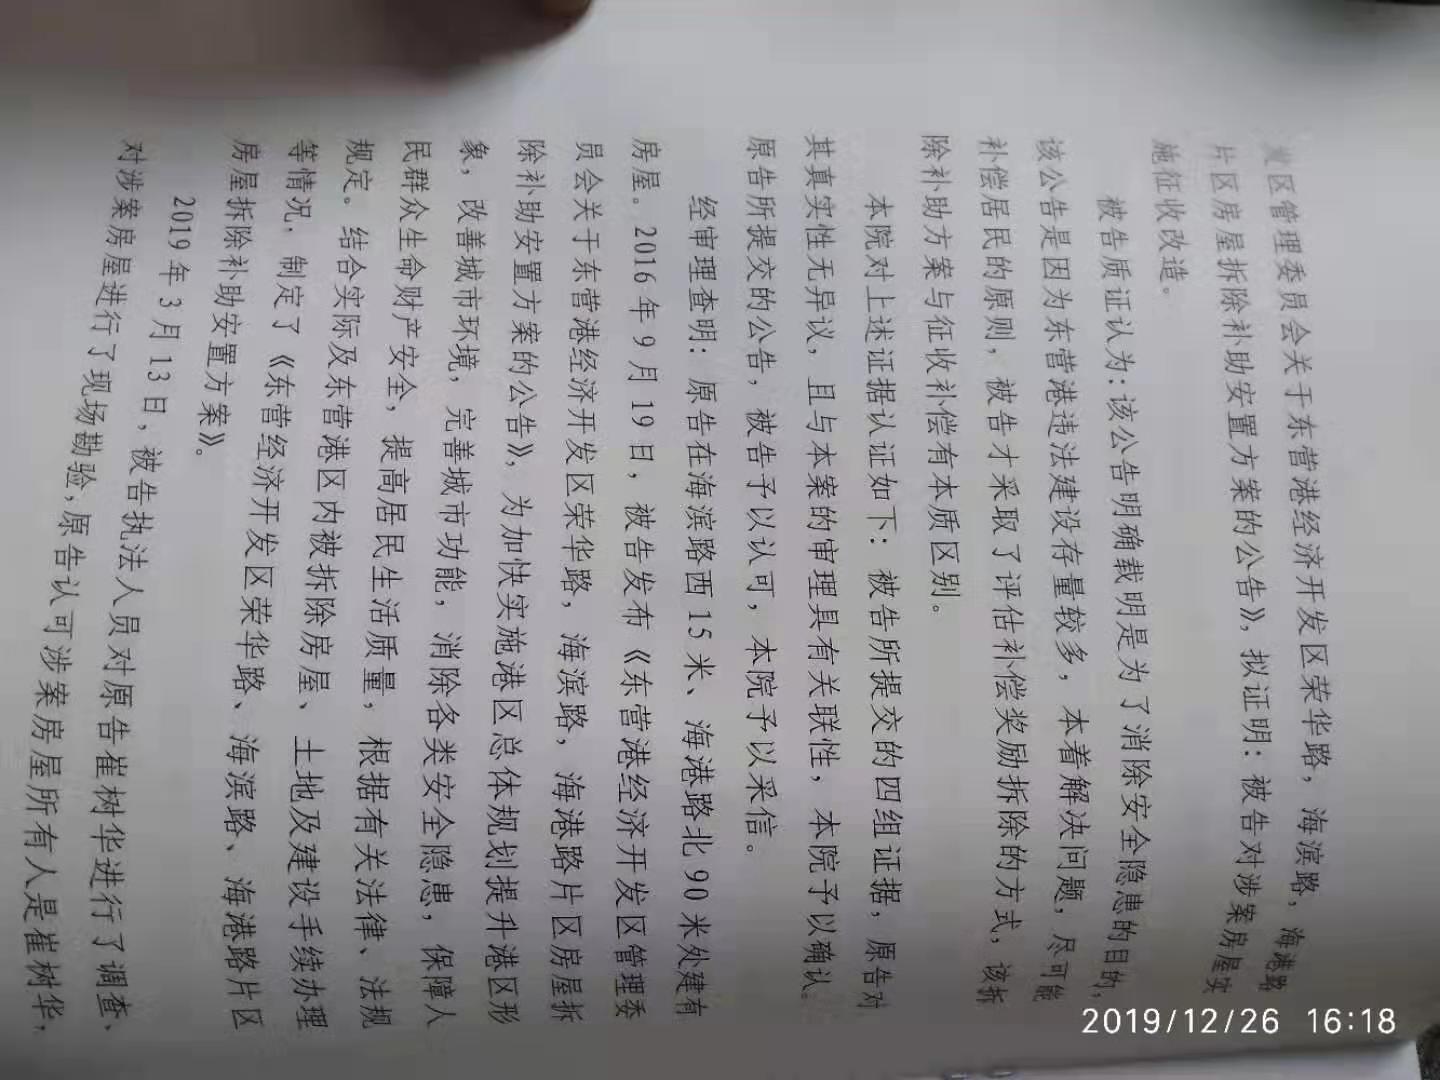 发区管理委员会关于东营港经济开发区荣华路，海滨路，海港路
片区房屋拆除补助安置方案的公告》，拟证明：被告对涉案房屋实
施征收改造。
被告质证认为：该公告明确载明是为了消除安全隐患的目的，
该公告是因为东营港违法建设存量较多，本着解决问题，尽可能
补偿居民的原则，被告才采取了评估补偿奖励拆除的方式，该拆
除补助方案与征收补偿有本质区别。
本院对上述证据认证如下：被告所提交的四组证据，原告对
其真实性无异议，且与本案的审理具有关联性，本院予以确认。
原告所提交的公告，被告予以认可，本院予以采信。
经审理查明：原告在海滨路西15米、海港路北90米处建有
房屋。2016年9月19日，被告发布《东营港经济开发区管理委
员会关于东营港经济开发区荣华路，海滨路，海港路片区房屋拆
除补助安置方案的公告》，为加快实施港区总体规划提升港区形
象，改善城市环境，完善城市功能，消除各类安全隐患，保障人
民群众生命财产安全，提高居民生活质量，根据有关法律、法规
规定。结合实际及东营港区内被拆除房屋、土地及建设手续办理
等情况，制定了《东营经济开发区荣华路、海滨路、海港路片区
房屋拆除补助安置方案》。
2019年3月13日，被告执法人员对原告崔树华进行了调查、
对涉案房屋进行了现场勘验，原告认可涉案房屋所有人是崔树华，
2019/12/26 16:18